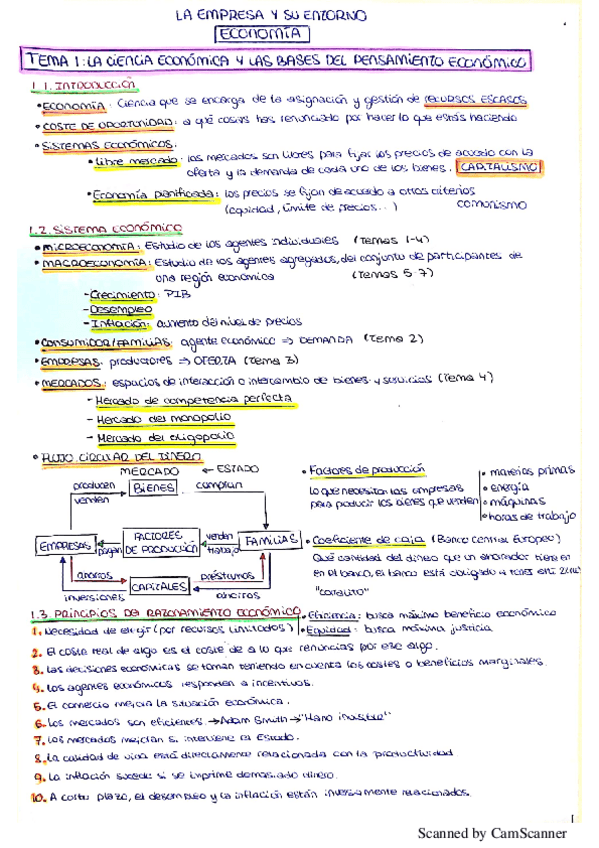 LA EMPRESA Y SU ENTORNO
ECONOMÍA
TEMA 1: LA CIENCIA ECONÓMICA Y LAS BASES DEL PENSAMIENTO ECONÓMICO
1.1. INTRODUCCIÓN
• ECONOMÍA: Ciencia que se encarga de la asignación y gestión de RECURSOS ESCASOS
• COSTE DE OPORTUNIDAD: a qué cosas has renunciado por hacer lo que estás haciendo
• SISTEMAS ECONÓMICOS:
• Libre mercado: los mercados son libres para fijar los precios de acuerdo con la
oferta y la demanda de cada uno de los bienes. CAPITALISMO
• Economía planificada: los precios se fijan de acuerdo a otros criterios
(equidad, límite de precios...) COMUNISMO
1.2. SISTEMA ECONÓMICO
• MICROECONOMÍA: Estudio de los agentes individuales (Temas 1-4)
• MACROECONOMÍA: Estudio de los agentes agregados, del conjunto de participantes de
una región económica (Temas 5-7)
- Crecimiento: PIB
- Desempleo
- Inflación: aumento del nivel de precios
• CONSUMIDOR/FAMILIAS: agente económico => DEMANDA (Tema 2)
• EMPRESAS: productores => OFERTA (Tema 3)
• MERCADOS: espacios de interacción o intercambio de bienes y servicios (Tema 4)
- Mercado de competencia perfecta
- Mercado del monopolio
- Mercado del oligopolio
• FLUJO CIRCULAR DEL DINERO
MERCADO ← ESTADO
producen BIENES compran
venden
EMPRESAS pagan FACTORES DE PRODUCCIÓN venden trabajo FAMILIAS
ahorros préstamos
inversiones CAPITALES ahorros
• Factores de producción
lo que necesitan las empresas
para producir los bienes que venden
• materias primas
• energía
• máquinas
• horas de trabajo
• Coeficiente de caja (Banco Central Europeo)
Qué cantidad del dinero que un ahorrador tiene
en el banco, el banco está obligado a tener
"corralito"
1.3. PRINCIPIOS DE RAZONAMIENTO ECONÓMICO
• Eficiencia: busca máximo beneficio económico
• Equidad: busca máxima justicia
1. Necesidad de elegir (por recursos limitados)
2. El coste real de algo es el coste de a lo que renuncias por ese algo.
3. Las decisiones económicas se toman teniendo en cuenta los costes o beneficios marginales.
4. Los agentes económicos responden a incentivos.
5. El comercio mejora la situación económica.
6. Los mercados son eficientes. → Adam Smith → "Mano invisible"
7. Los mercados mejoran si interviene el Estado.
8. La calidad de vida está directamente relacionada con la productividad
9. La inflación sucede si se imprime demasiado dinero.
10. A corto plazo, el desempleo y la inflación están inversamente relacionados.
1
Scanned by CamScanner